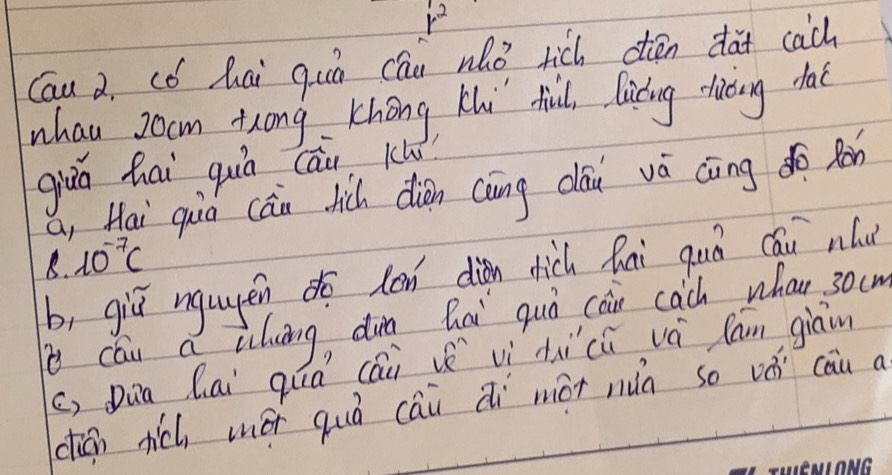 r²
Câu 2. có hai quả cầu nhỏ tích điện đặt cách
nhau 20cm trong không khí tính lượng tương tác
giữa hai quả cầu khi
a, Hai quả cầu tích điện cùng dấu và cùng độ lớn
8.10⁻⁷C
b, giữ nguyên độ lớn điện tích hai quả cầu như
ở câu a nhưng đưa hai quả cầu cách nhau 30cm
c, Đưa hai quả cầu về vị trí cũ và làm giảm
điện tích một quả cầu đi một nửa so với câu a
THIÊN LONG